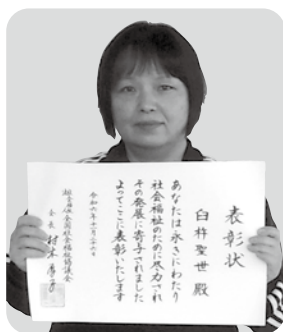 表彰状
臼杵聖世 殿
あなたは永きにわたり
社会福祉のために尽力され
その発展に寄与されました
よってここに表彰いたします
令和六年十一月二十六日
全国社会福祉協議会
会長 村木厚子